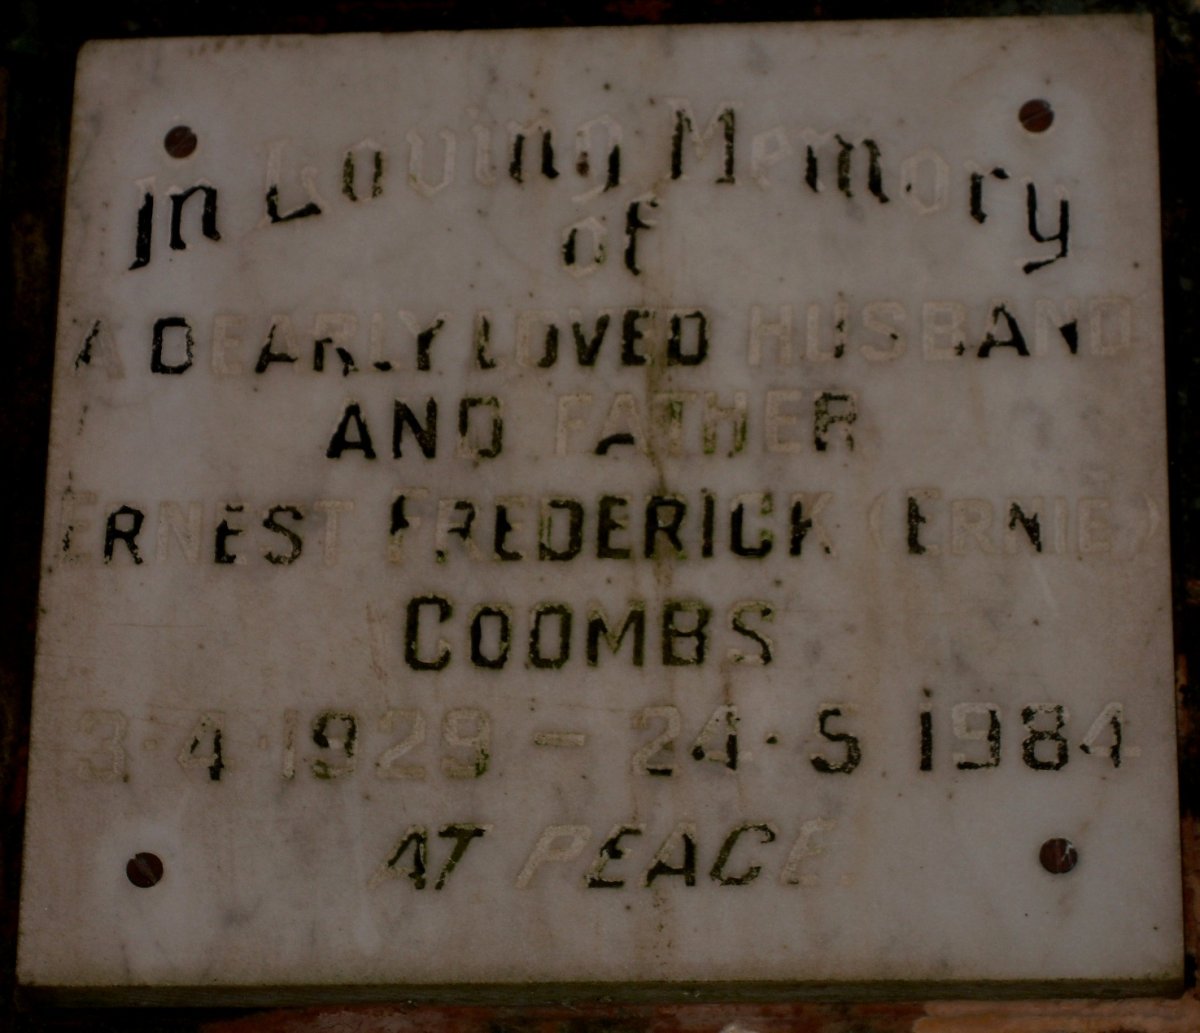 In Loving Memory
of
A DEARLY LOVED HUSBAND
AND FATHER
ERNEST FREDERICK (ERNIE)
COOMBS
3·4·1929 - 24·5 1984
AT PEACE.